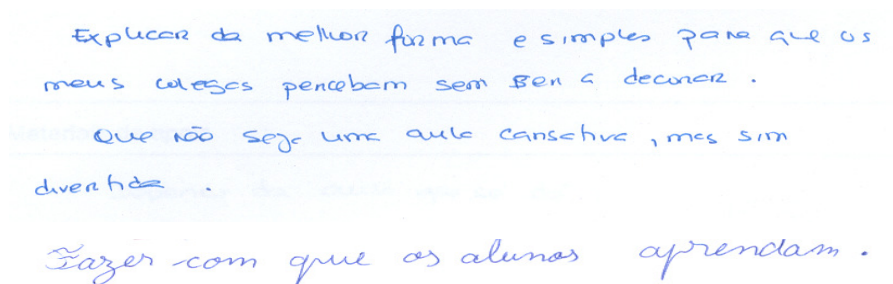 Explicar da melhor forma e simples para que os
meus colegas percebam sem ser a decorar.
Que não seje uma aula cansativa, mas sim
divertida.
Fazer com que os alunos aprendam.